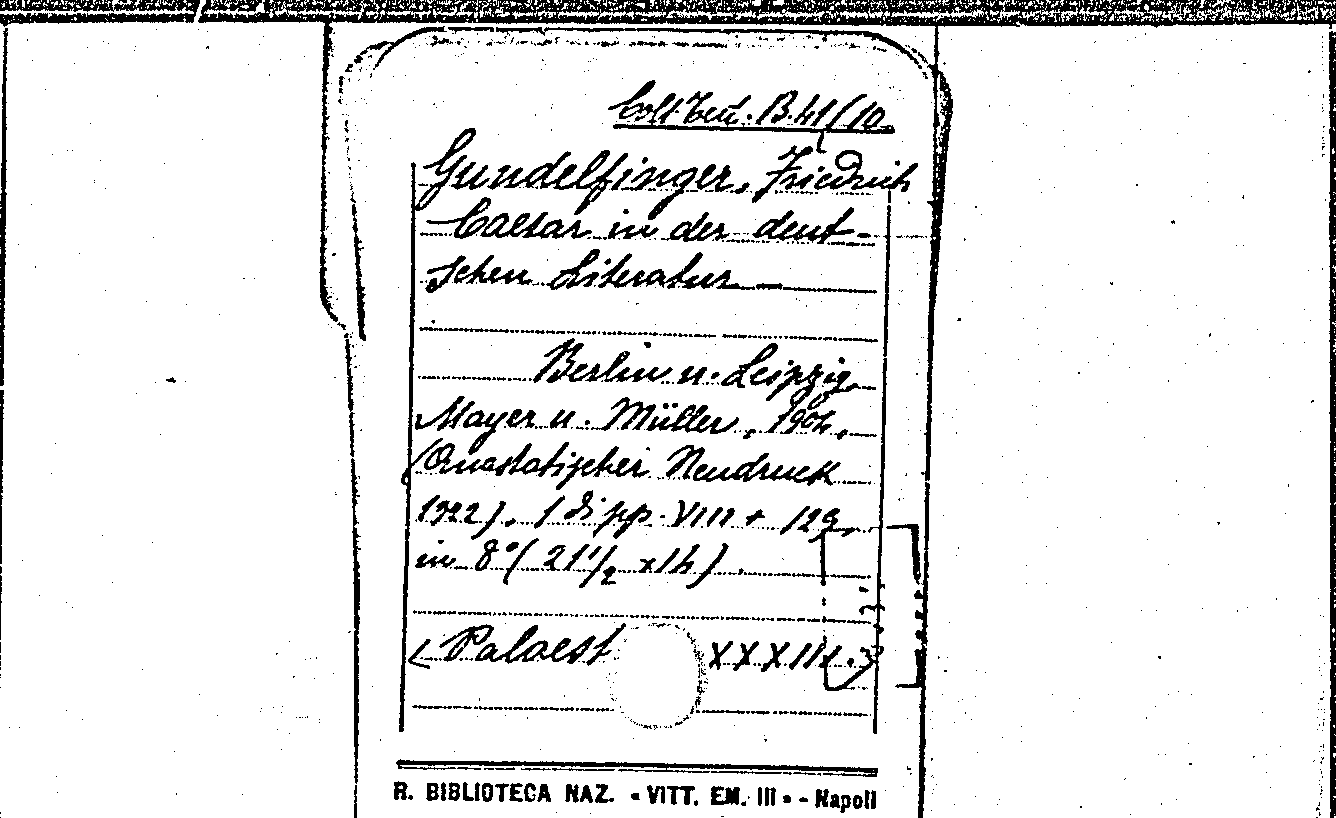 Coll. Ted. B. 41/10.
Gundelfinger, Friedrich
Caesar in der deut-
schen Literatur —
Berlin u. Leipzig,
Mayer u. Müller, 1904,
(Anastatischer Neudruck
1922). 1 di pp. VIII + 129,
in 8° (21 1/2 x 14).
(Palaest XXXIII.)
R. BIBLIOTECA NAZ. « VITT. EM. III » - Napoli